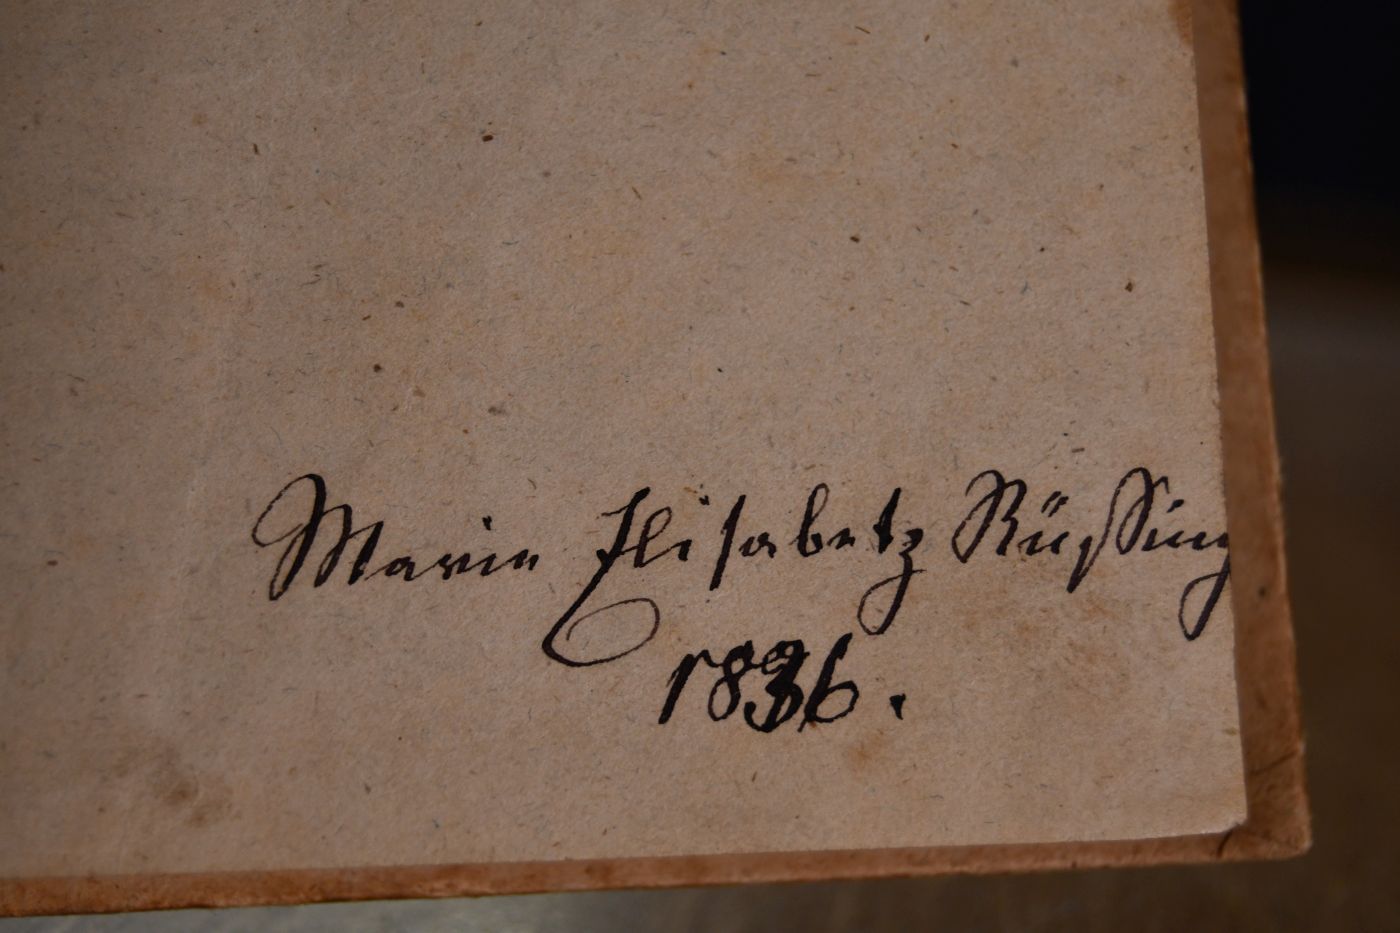 Marie Elisabetz Rüssing
1836.